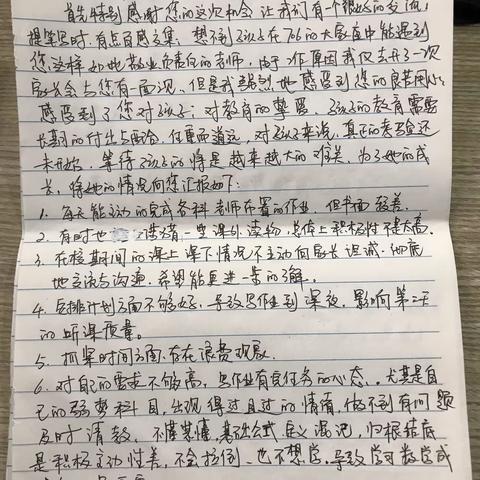 首先特别感谢您的这次机会,让我们有个很好的交流,
提笔写时,有点百感交集,想不到孩子在706的大家庭中能遇到
您这样如此敬业负责的老师,由于工作原因我仅去开了一次
家长会与您有一面识,但是我强烈地感受到您的良苦用心,
感受到了您对孩子;对教育的挚爱,孩子的教育需要
长期的付出与配合,任重而道远,对孩子来说,真正的考验还
未开始,等待孩子的将是越来越大的难关,为了她的成
长,将她的情况向您汇报如下:
1. 每天能主动的完成各科老师布置的作业,但书面较差.
2. 有时也会读一些课外读物,总体上积极性不太高.
3. 在校期间的课上课下情况不主动向家长坦诚、彻底
地交流与沟通,希望能更进一步的了解.
4. 安排计划方面不够好,导致写作业到深夜,影响第二天
的听课质量。
5. 抓紧时间方面,存在浪费现象.
6. 对自己的要求不够高,写作业有完任务的心态,尤其是自
己的弱势科目,出现得过且过的情有,做不到有问题
及时请教,不懂装懂,基础公式、定义混沌,归根结底
是积极主动性差,不会拉倒,也不想学,导致学习数学成